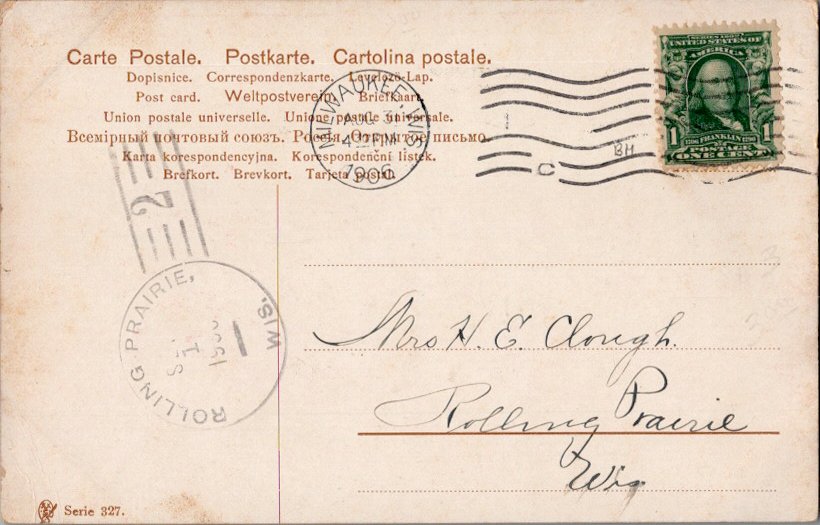 Carte Postale. Postkarte. Cartolina postale.
Dopisnice. Correspondenzkarte. Levelező-Lap.
Post card. Weltpostverein. Briefkaart.
Union postale universelle. Unione postale universale.
Всемірный почтовый союзъ. Россія. Открытое письмо.
Karta korespondencyjna. Korespondenční lístek.
Brefkort. Brevkort. Tarjeta postal.
MILWAUKEE, WIS.
AUG 31
4 PM
1906
C
BH
SERIES 1902
UNITED STATES OF
AMERICA
1 FRANKLIN 1
POSTAGE
ONE CENT
2
ROLLING PRAIRIE, WIS.
Mrs H. E. Clough.
Rolling Prairie
Wis
Serie 327.